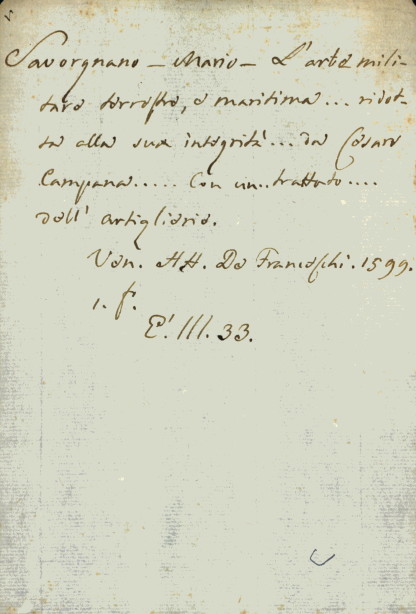 Savorgnano – Mario – L'arte mili-
tare terrestre, e maritima ... ridot-
ta alla sua integrità ... da Cesare
Campana ..... Con un .. trattato ....
dell' artiglierie.
Ven. HH. De Franceschi. 1599.
1. f.
E'. III. 33.